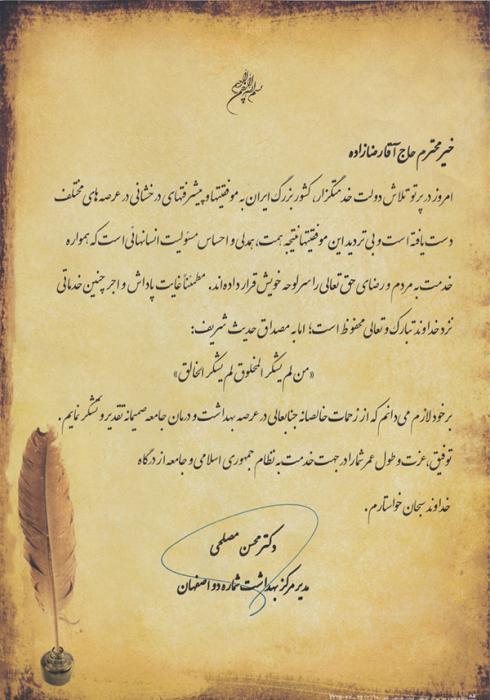 بسم الله الرحمن الرحیم
خیر محترم حاج آقا رضازاده
امروز در پرتو تلاش دولت خدمتگزار، کشور بزرگ ایران به موفقیتها و پیشرفتهای درخشانی در عرصه های مختلف
دست یافته است و بی تردید این موفقیتها نتیجه همت، همدلی و احساس مسئولیت انسانهائی است که همواره
خدمت به مردم و رضای حق تعالی را سرلوحه خویش قرار داده اند، مطمئناً غایت پاداش و اجر چنین خدماتی
نزد خداوند تبارک و تعالی محفوظ است؛ اما به مصداق حدیث شریف:
«من لم یشکر المخلوق لم یشکر الخالق»
بر خود لازم می دانم که از زحمات خالصانه جنابعالی در عرصه بهداشت و درمان جامعه صمیمانه تقدیر و تشکر نمایم.
توفیق، عزت و طول عمر شما را در جهت خدمت به نظام جمهوری اسلامی و جامعه از درگاه
خداوند سبحان خواستارم.
دکتر محسن مصلحی
مدیر مرکز بهداشت شماره دو اصفهان